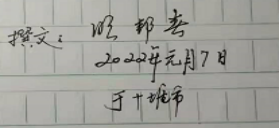 撰文：邦春
2022年元月7日
于十堰市